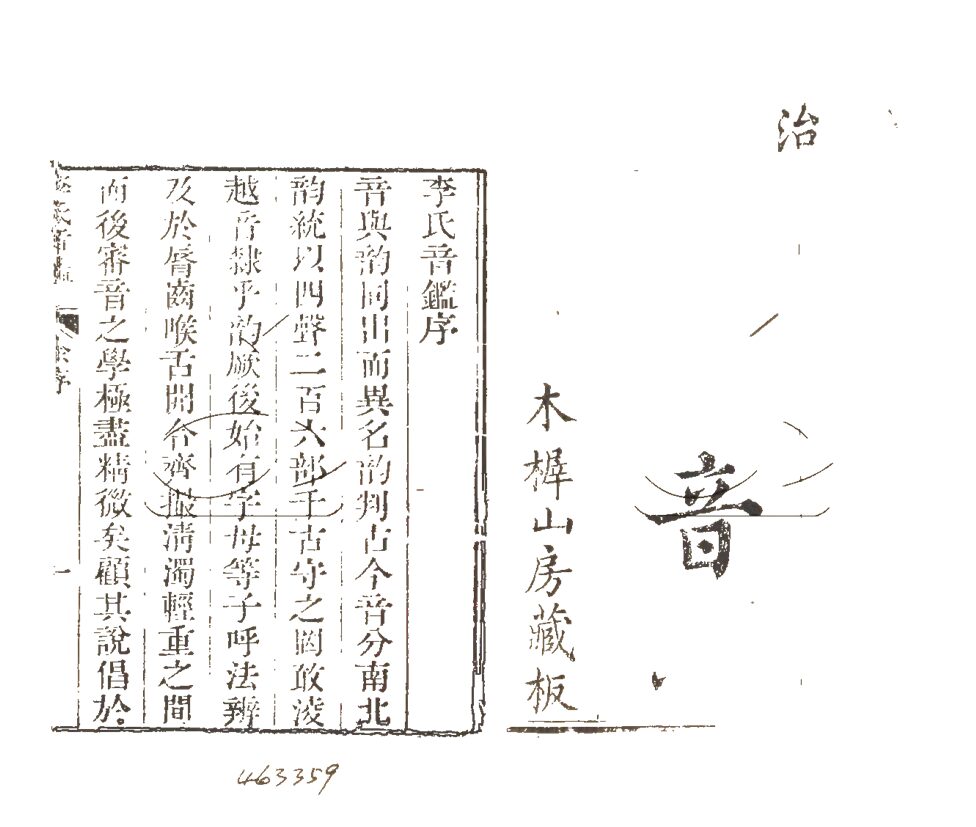 治
音
木樨山房藏板
李氏音鑑序
音與韵同出而異名韵判古今音分南北
韵統以四聲二百六部千古守之罔敢淩
越音隸乎韵厥後始有字母等子呼法辨
及於脣齒喉舌開合齊撮清濁輕重之間
而後審音之學極盡精微矣顧其說倡於
李氏音鑑
余序
一
463359